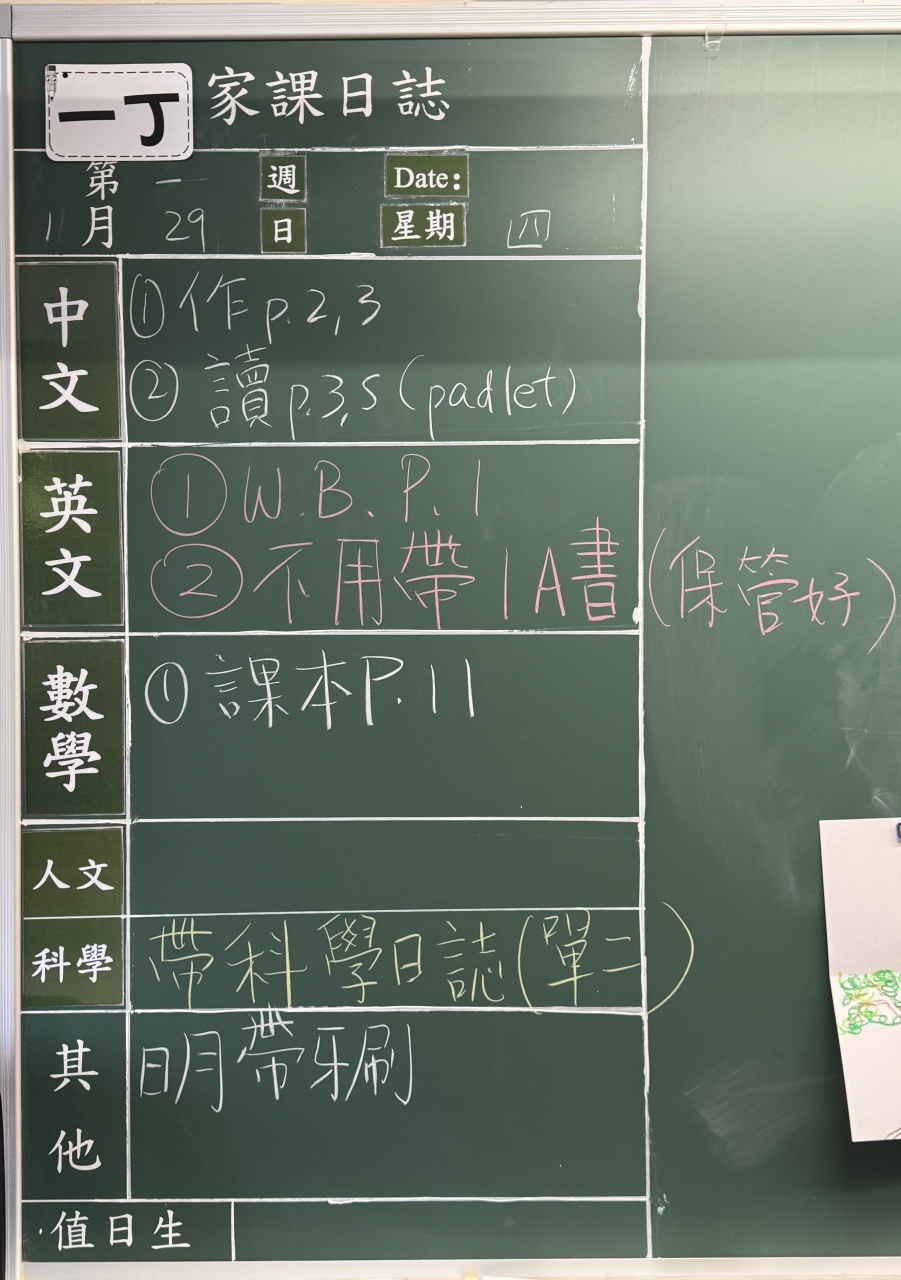 一丁 家課日誌
第 一 週 Date:
11 月 29 日 星期 四
中文
①作p.2,3
② 讀p.3,5(padlet)
英文
①W.B. P.1
②不用帶1A書(保管好)
數學
①課本P.11
人文
科學
帶科學日誌(單二)
其他
明帶牙刷
值日生